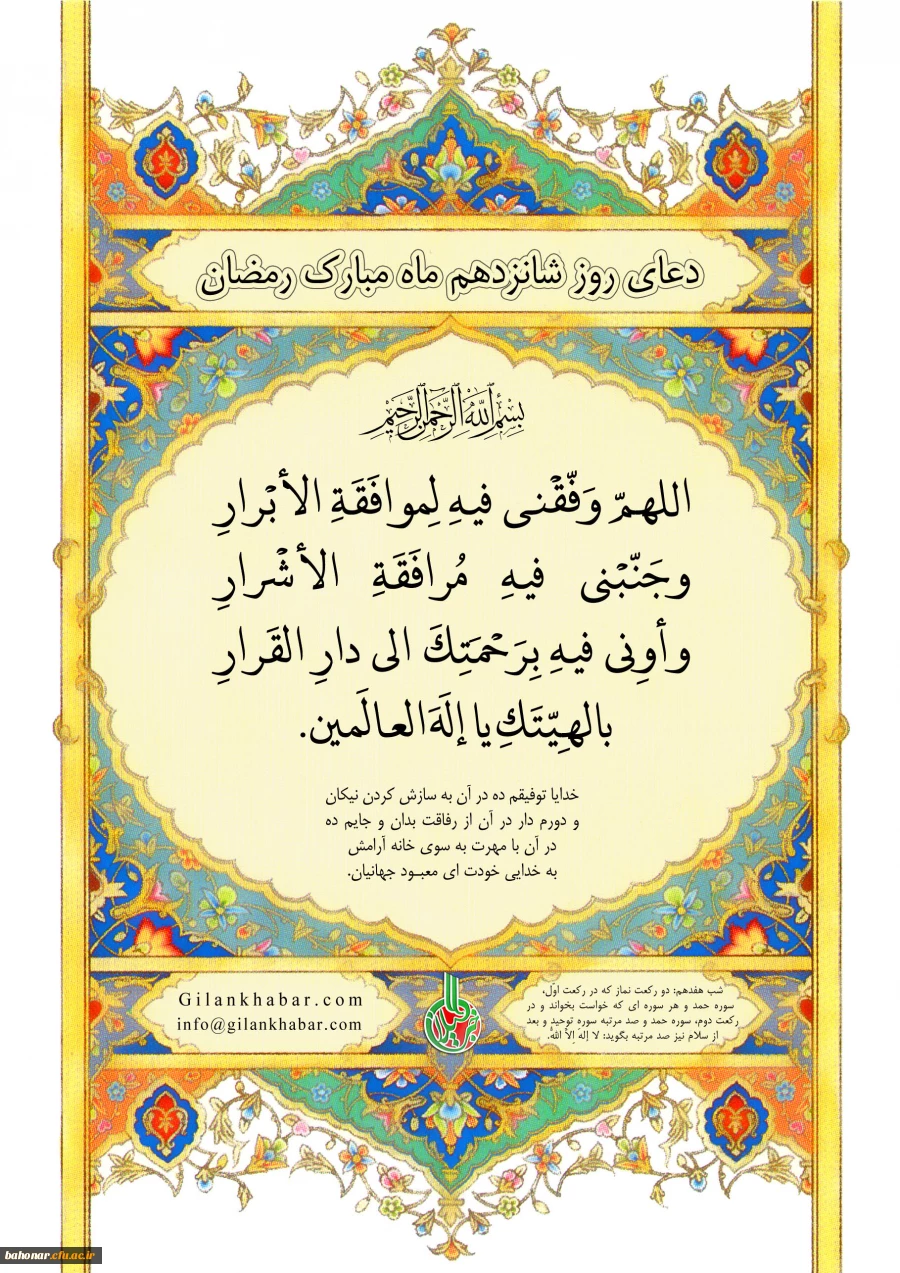 دعای روز شانزدهم ماه مبارک رمضان
بِسْمِ اللَّهِ الرَّحْمَنِ الرَّحِيمِ
اللهمّ وَفّقْنی فیهِ لِموافَقَةِ الأبْرارِ
وجَنّبْنی فیهِ مُرافَقَةِ الأشْرارِ
وأوِنی فیهِ بِرَحْمَتِكَ الی دارِ القَرارِ
بالهِیّتَكِ یا إلَهَ العالَمین.
خدایا توفیقم ده در آن به سازش کردن نیکان
و دورم دار در آن از رفاقت بدان و جایم ده
در آن با مهرت به سوی خانه آرامش
به خدایی خودت ای معبـود جهانیان.
شب هفدهم: دو رکعت نماز که در رکعت اوّل،
سوره حمد و هر سوره ای که خواست بخواند و در
رکعت دوم، سوره حمد و صد مرتبه سوره توحید و بعد
از سلام نیز صد مرتبه بگوید: لا إلهَ إلاَّ اللهُ.
Gilankhabar.com
info@gilankhabar.com
bahonar.cfu.ac.ir